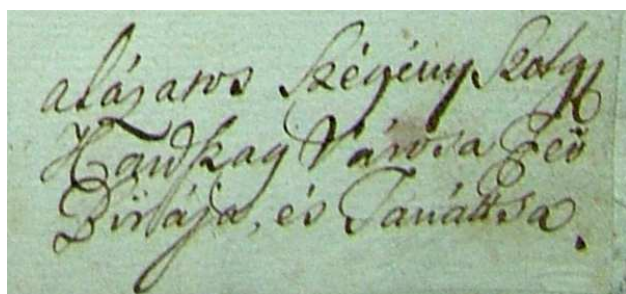 alázatos Szégény Szolgi
Kardszag Várossa Feö
Birája, és Tanáttsa.